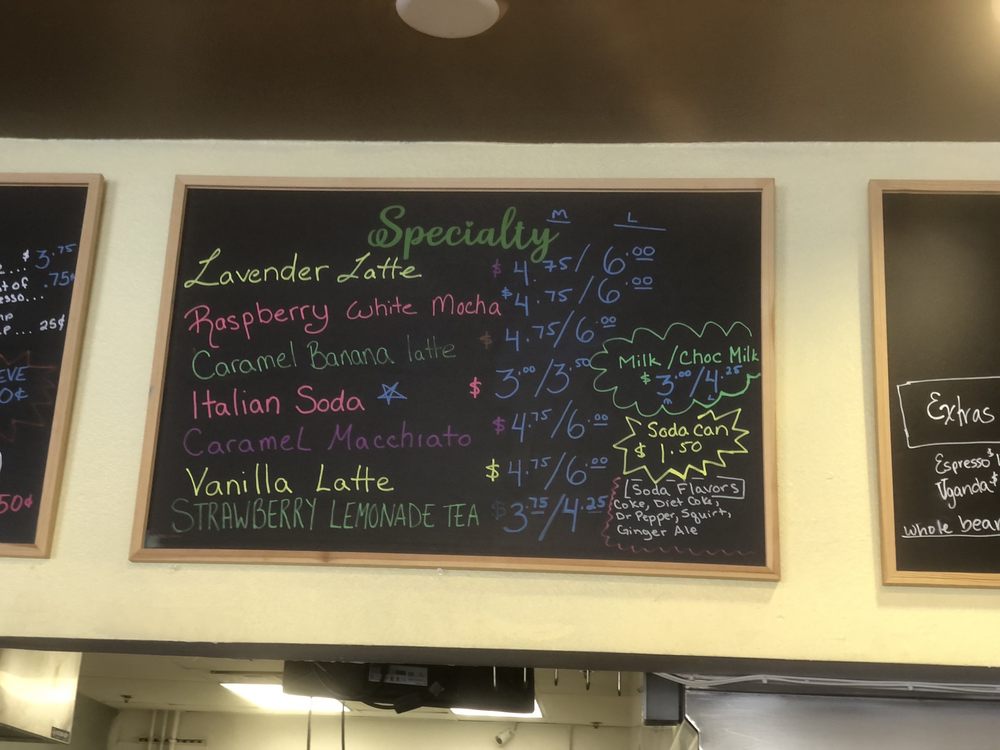 Specialty M L
Lavender Latte $4.75/6.00
Raspberry White Mocha $4.75/6.00
Caramel Banana latte 4.75/6.00
Italian Soda $3.00/3.50
Caramel Macchiato $4.75/6.00
Vanilla Latte $4.75/6.00
STRAWBERRY LEMONADE TEA $3.75/4.25
Milk/Choc Milk
$3.00/4.25
M L
Soda Can
$1.50
Soda Flavors
Coke, Diet Coke,
Dr Pepper, Squirt,
Ginger Ale
... $3.75
.75¢
... 25¢
50¢
Extras
Espresso $1
Uganda $
whole bean